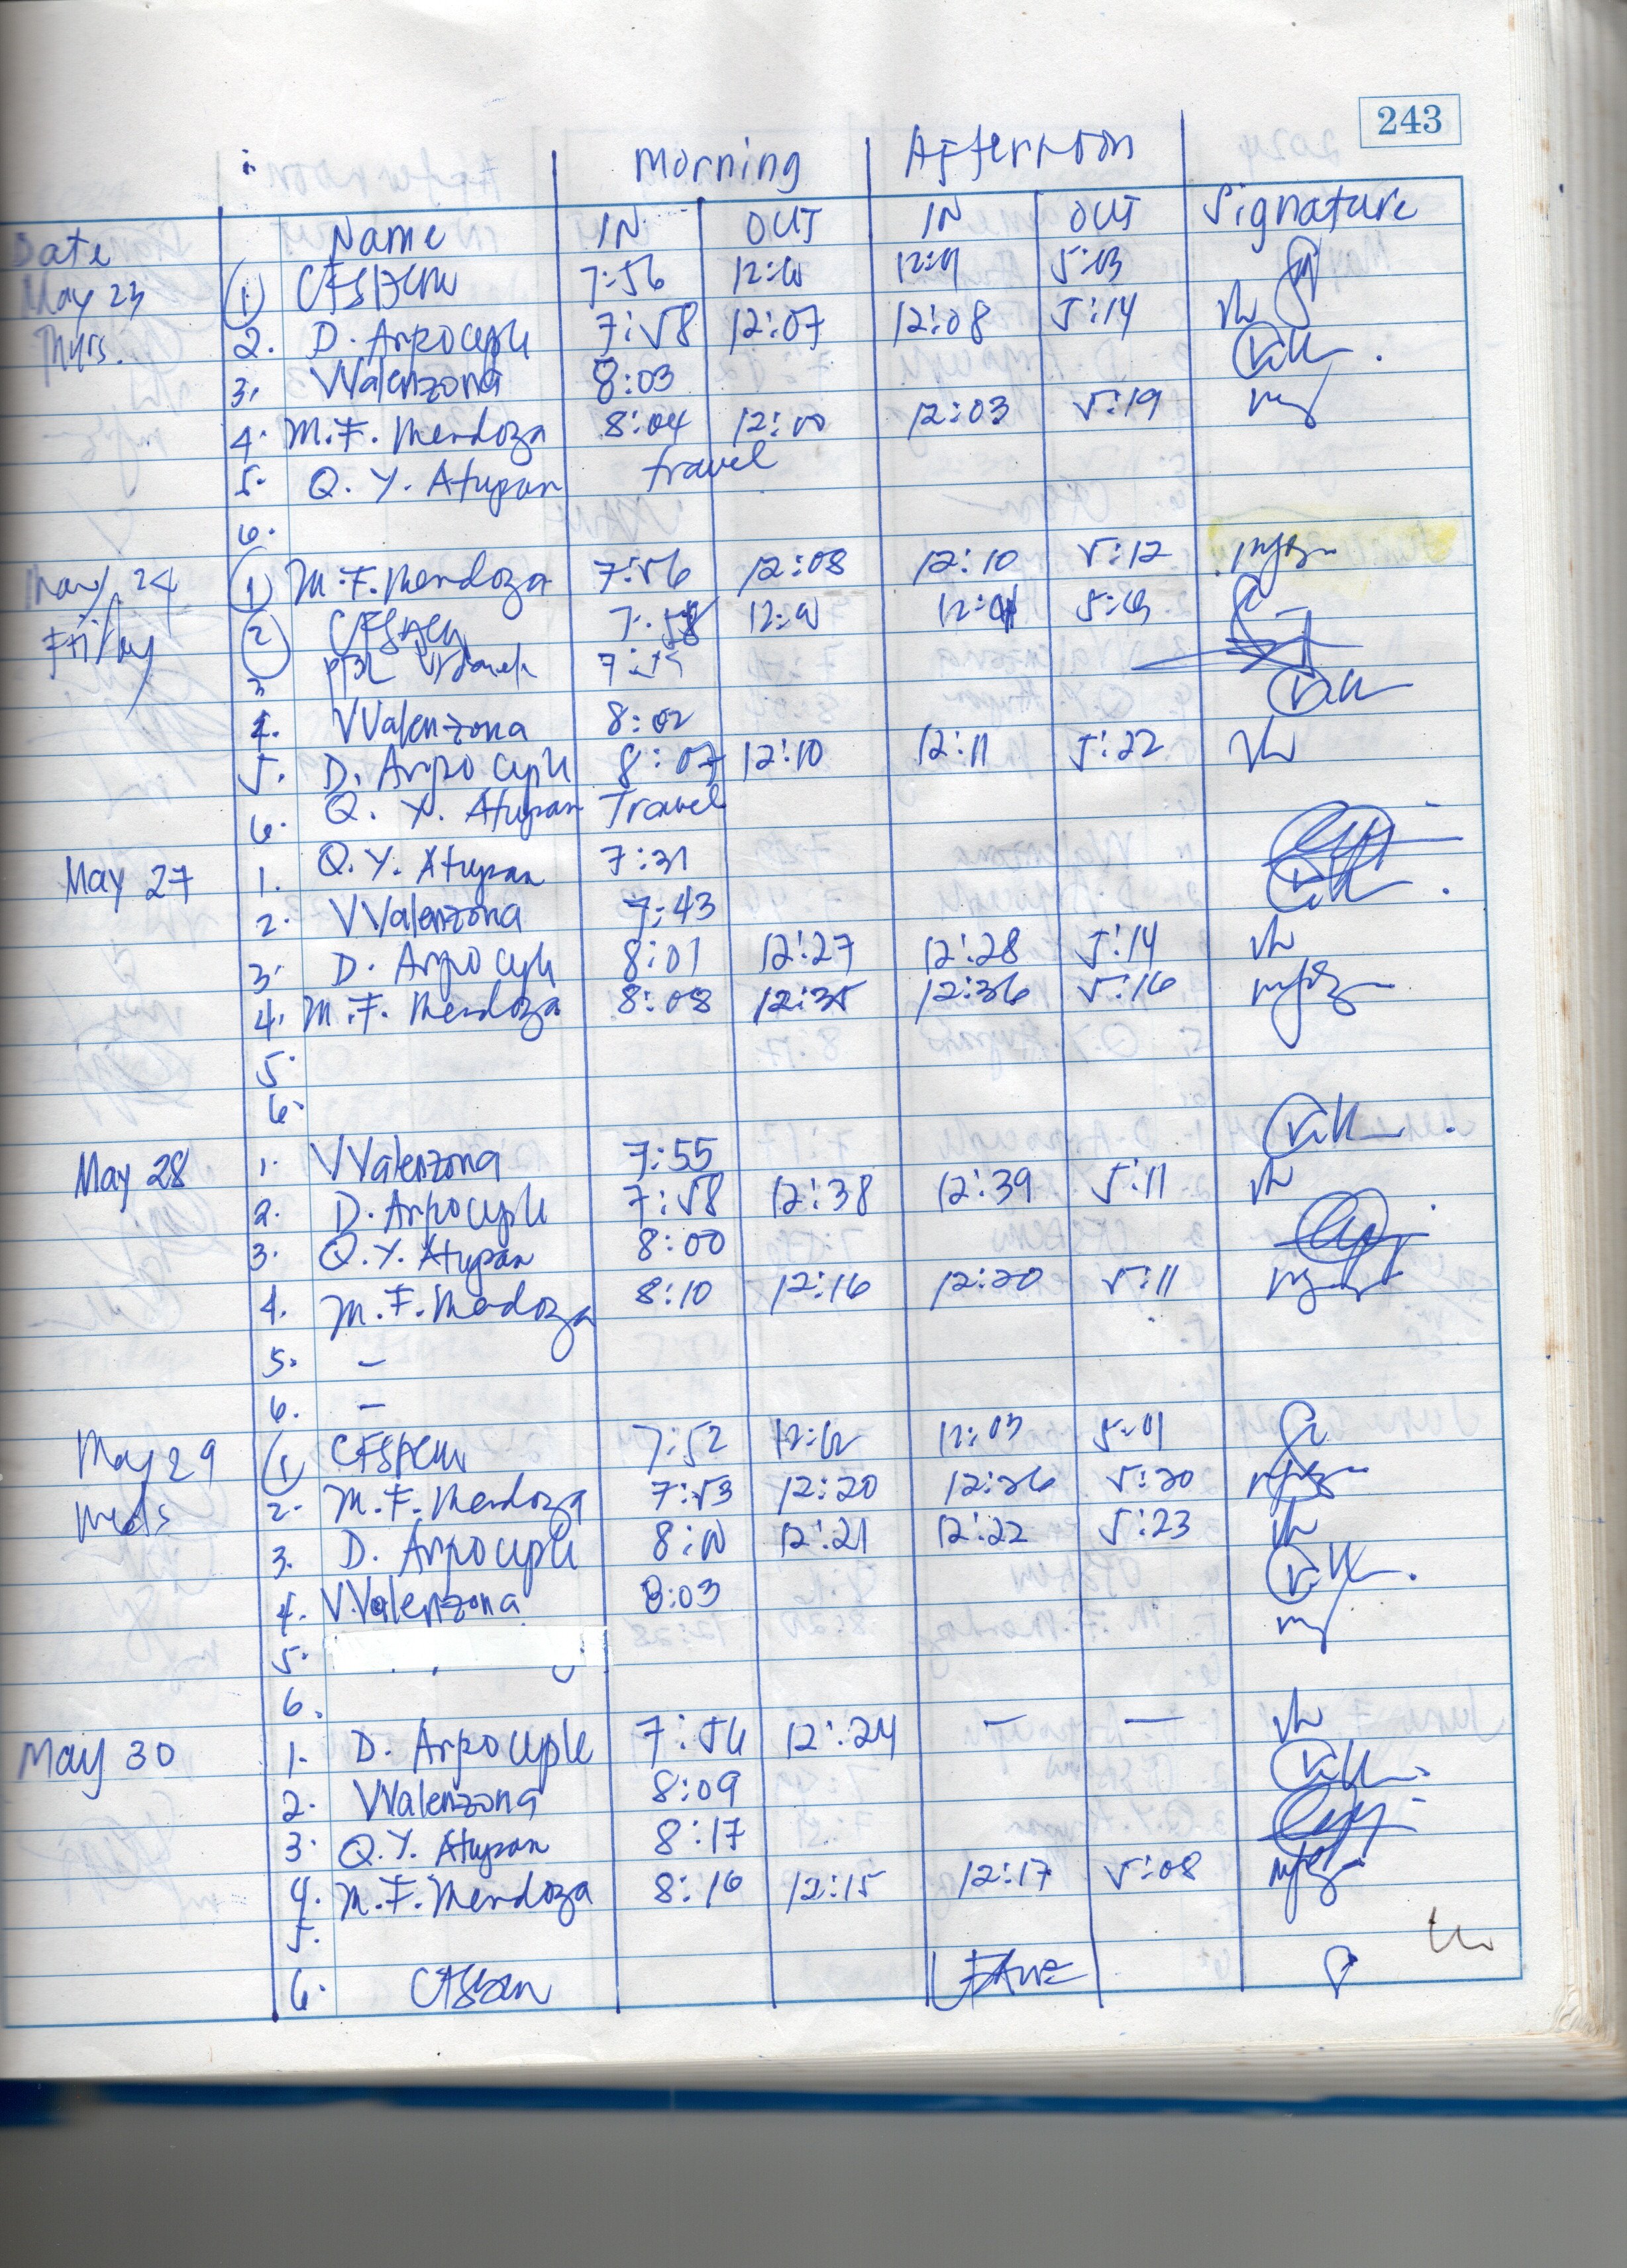 243
Morning Afternoon
Date Name IN OUT IN OUT Signature
May 23 1 7:56 5:03
Thurs. 2. D. Arpocyple 7:58 12:07 12:08 5:14
3. VValenzona 8:03
4. M.F. Mendoza 8:04 12:00 12:03 5:19
5. Q. Y. Atupan travel
6.
May 24 1 M.F. Mendoza 7:56 12:08 12:10 5:12
Friday 2 7:58
3
4. VValenzona 8:02
5. D. Arpocyple 8:07 12:10 12:11 5:22
6. Q. Y. Atupan Travel
May 27 1. Q. Y. Atupan 7:31
2. VValenzona 7:43
3. D. Arpocyple 8:01 12:27 12:28 5:14
4. M.F. Mendoza 8:08 12:35 12:36 5:16
5.
6.
May 28 1. VValenzona 7:55
2. D. Arpocyple 7:58 12:38 12:39 5:11
3. Q. Y. Atupan 8:00
4. M.F. Mendoza 8:10 12:16 12:20 5:11
5. -
6. -
May 29 1 7:52 12:03 5:01
Weds 2. M.F. Mendoza 7:53 12:20 12:26 5:20
3. D. Arpocyple 8:00 12:21 12:22 5:23
4. VValenzona 8:03
5.
6.
May 30 1. D. Arpocyple 7:56 12:24 - -
2. VValenzona 8:09
3. Q. Y. Atupan 8:17
4. M.F. Mendoza 8:16 12:15 12:17 5:08
5.
6.